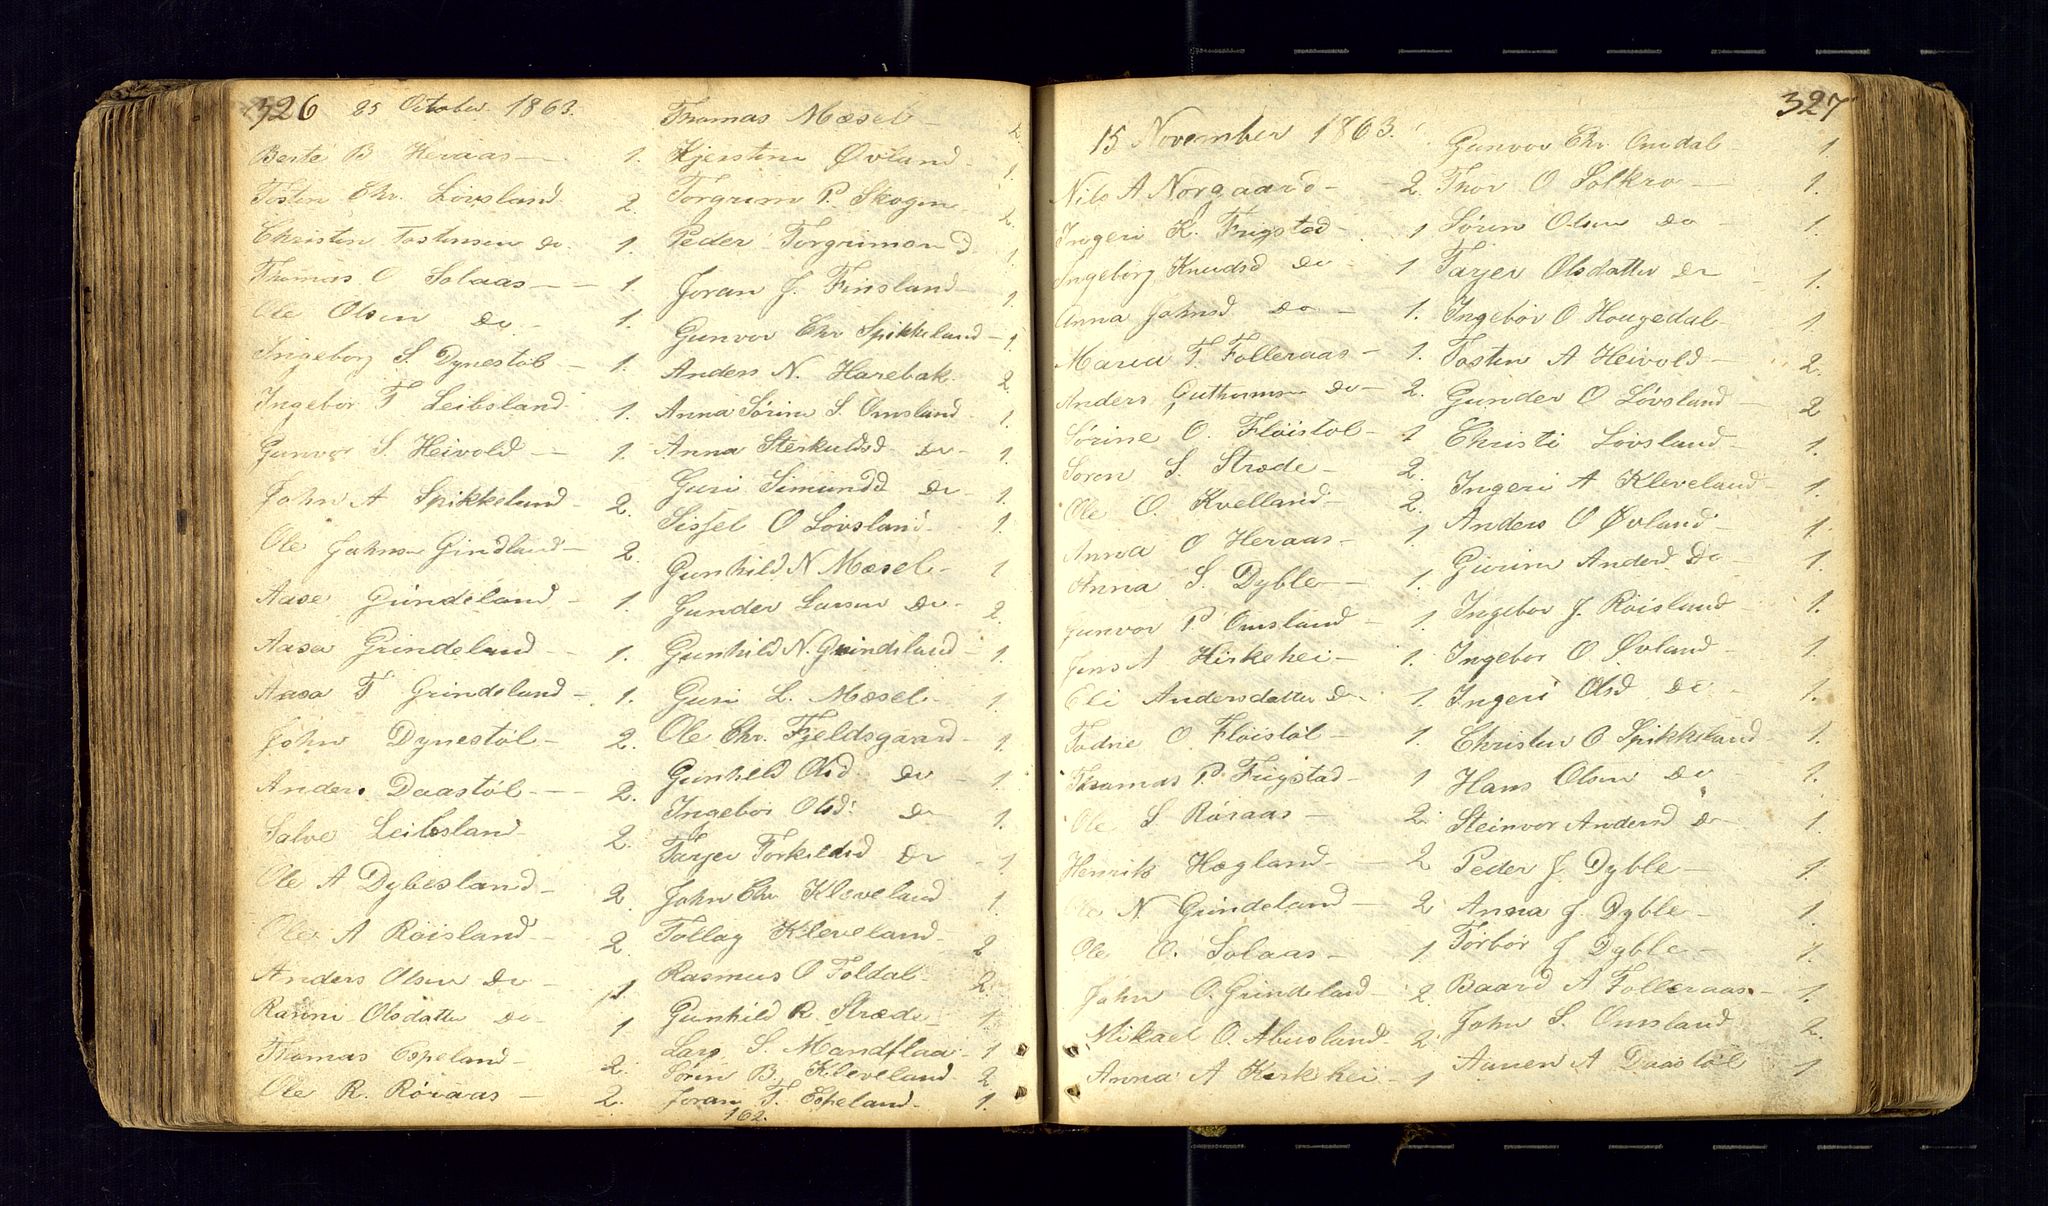 326 25 October 1863.
Berte B Heraas - 1.
Tosten Chr. Lövsland 2.
Christen Tostensen do. 1.
Thomas O Solaas - - 1.
Ole Olsen do - 1.
Ingeborg S. Dynestöl - 1.
Ingebor T Leibsland 1.
Gunvor S. Heivold - 1.
John A Spikkeland 2.
Ole Johnsen Gindland - 2.
Aase Grindeland - 1.
Aasa Grindeland - 1.
Aasa T Grindeland - 1.
John Dynestöl - 2.
Anders Daastöl - - 2.
Salve Leibsland 2.
Ole A Dybesland - 2.
Ole A Röisland - 2.
Anders Olsen do - 1
Olsdatter do - 1
Thomas Espeland - 2.
Ole R. Röraas - 2.
Thomas Mæsel - 2
Kjerstine Øvland - 1.
Torgrim P. Skogen 2
Peder Torgrimsen D 1
Joran J. Finsland - 1
Gunvor Chr Spikkeland - 1.
Anders N. Harebak. 2
Anna Sörine S. Omsland 1
Anna Sterkuldsd do - 1.
Guri Simundd do - 1.
Sissel O Lövsland - 1.
Gunhild N Mæsel - 1
Gunder Larsen do - 2.
Gunhild N. Grindeland - 1.
Guri L. Mæsel - 1
Ole Chr. Fjeldsgaard - 1.
Gunhild Olsd. do - 1
Ingebor Olsd. do - 1.
Tarjer Torkildsd do - 1
John Chr Kleveland 1
Tollag Kleveland 2
Rasmus O Foldal - 2.
Gunhild R. Stræde - 1
Lars S. Mandflaa - 1
Sören B. Kleveland - 2
Joran T. Espeland - 1.
162.
327
15 November 1863.
Nils A Norgaard - 2.
Ingeri K. Frigstad - 1
Ingeborg Knudsd do - 1
Anna Johnsd do - 1.
Maria T. Folleraas - 1.
Anders Guthormsen do - 2.
Sörine O. Flöistöl - 1
Soren S. Stræde - 2.
Ole O. Kvelland - 2.
Anna O Heraas - 1
Anna S. Dyble - 1.
Gunvor P. Omsland - 1.
Jens A Hirkehei - 1.
Eli Andersdatter do 1.
Todne O. Flöistöl - 1.
Thomas P. Frigstad - 1
Ole S Röraas - 2.
Henrik Hægland - 2
Ole N Grindeland - 2
Ole O. Solaas - 1
John O. Grindeland 2
Mikael O. Abusland 2
Anna A Kirkehei 1
Gunvor Chr. Omdal - 1.
Thor O Solkro 1.
Sören Olsen do - 1.
Tarjer Olsdatter do 1.
Ingebor O Hougedal 1
Tosten A Heivold - 2.
Gunder O Lövsland - 2
Christi Lövsland - 1.
Ingeri A Kleveland - 1.
Anders O Øvland - 1.
Anders. Do - 1.
Ingebor J. Röisland 1.
Ingebor O Øvland - 1.
Ingeri Olsd do - 1.
Christen O Spikkeland - 1.
Hans Olsen do 1.
Steinvor Andersd do 1.
Peder J. Dyble - 1.
Anna J. Dyble - 1.
Torbör J Dyble - 1.
Baard A Folleraas - 1.
John S. Omsland 2.
Aanen A Daastöl 1